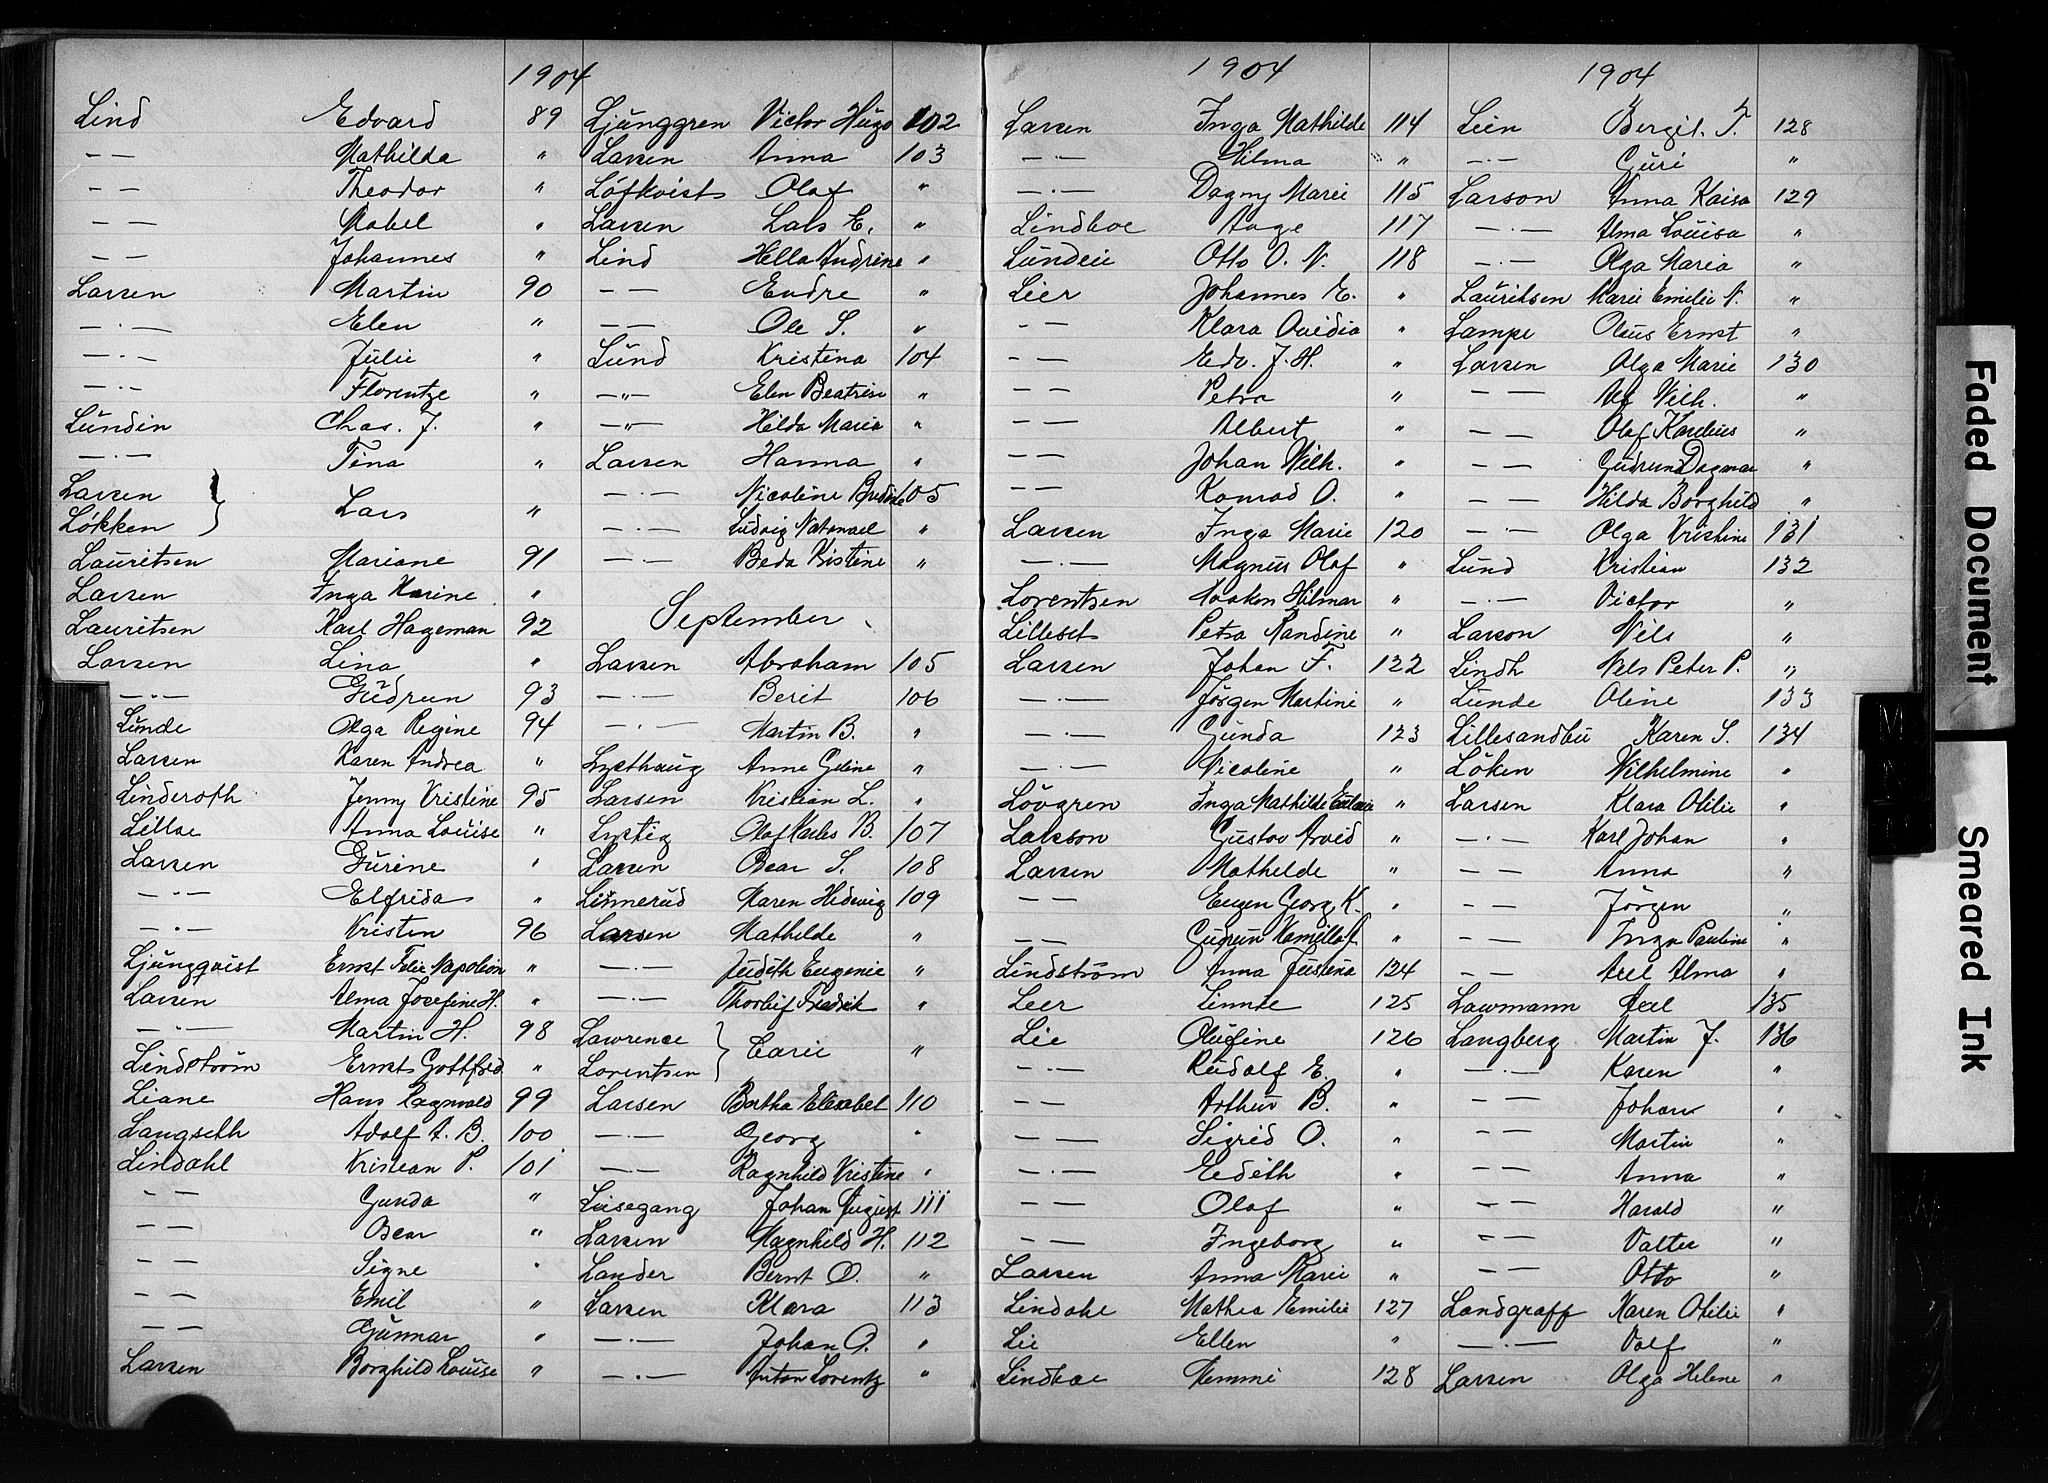 1904
Lind Edvard 89
— — Mathilda "
— — Theodor "
— — Mabel "
— — Johannes "
Larsen Martin 90
— " — Elen "
— " — Julie "
— " — Florentze "
Lundin Chas. J. "
— " — Tina "
Larsen } Lars "
Løkken }
Lauritsen Mariane 91
Larsen Inga Karine "
Lauritsen Karl Hageman 92
Larsen Lina "
— " — Gudrun 93
Lunde Olga Regine 94
Larsen Karen Andrea "
Linderoth Jenny Kristine 95
Lilloe Anna Louise "
Larsen Gurine "
— " — Elfrida "
— " — Kristen 96
Ljungqvist Ernst Felix Napoleon "
Larsen Alma Josefine H. "
— " — Martin H. 98
Lindstrøm Ernst Gottfred "
Liane Hans Ragnvald 99
Langseth Adolf A. B. 100
Lindahl Kristian P. 101
— — Gunda "
— — Oscar "
— — Signe "
— — Emil "
— — Gunnar "
Larsen Borghild Louise "
Ljunggren Victor Hugo 102
Larsen Anna 103
Löfkvist Olaf "
Larsen Lars E. "
Lind Hella Andrine "
— — Endre "
— — Ole S. "
Lund Kristina 104
— " — Elen Beatrise "
— " — Hilda Maria "
Larsen Hanna "
— " — Nicoline 105
— " — Ludvig Natanael "
— " — Beda Kistine "
September
Larsen Abraham 105
— " — Berit 106
— " — Martin B. "
Lysthaug Anne Geline "
Larsen Kristian L. "
Lystig Olaf Karles B. 107
Larsen Oscar S. 108
Linnerud Maren Hedevig 109
Larsen Mathilde "
— " — Judith Eugenie "
— " — Thorleif Fredrik "
Lawrence } Carie "
Lorentsen }
Larsen Bertha Elisabet 110
— " — Georg "
— — Ragnhild Kristine "
Liisegang Johan August 111
Larsen Magnhild H. 112
Lander Bernt O. "
Larsen Klara 113
— " — Johan O. "
— " — Anton Lorentz "
1904
Larsen Inga Mathilde 114
— " — Hilma "
— " — Dagny Marie 115
Lindboe Aage 117
Lundeie Otto O. N. 118
Lier Johannes E. "
— — Klara Ovidia "
— — Edv. J. H. "
— — Petra "
— — Albert "
— — Johan Wilh. "
— — Konrad O. "
Larsen Inga Marie 120
— " — Magnus Olaf "
Lorentsen Haakon Hilmar "
Lilleset Petra Randine "
Larsen Johan F. 122
— " — Jörgen Martine "
— " — Gunda 123
— " — Nicoline "
Lövgren Inga Mathilde "
Larsson Gustav Arvid "
Larsen Mathilde "
— — Eugen Georg K. "
— — Gudrun "
Lindström Anna Justina 124
Leer 125
Lie Olufine 126
— " — Rudolf E. "
— — Arthur B. "
— — Sigrid O. "
— " — Eedith "
— — Olaf "
— — Ingeborg "
Larsen Anna Marie "
Lindahl Mathea Emilie 127
Lie Ellen "
Lindboe Memmi 128
1904
Lien Bergit T. 128
— " — Guri "
Larson Anna Kaisa 129
— " — Alma Louisa "
— " — Olga Maria "
Lauritsen Marie Emilie N. "
Lampe Olaus Ernst "
Larsen Olga Marie 130
— — Alf Wilh. "
— — Olaf Kornelius "
— — Gudrun Dagmar "
— — Hilda Borghild "
— " — Olga Kristine 131
Lund Kristian 132
— " — Victor "
Larson Nils "
Lindh Nels Peter P. "
Lunde Oline 133
Lillesandbu Karen S. 134
Löken Wilhelmine "
Larsen Klara Otilie "
— " — Karl Johan "
— — Anna "
— — Jörgen "
— — Inga Pauline "
— — Axel Alma "
Lawmann Axel 135
Langberg Martin J. 136
— " — Karen "
— — Johan "
— — Martin "
— — Anna "
— — Harald "
— — Valter "
— — Otto "
Landgraff Karen Otilie "
— " — Rolf "
Larsen Olga Helene "
Faded Document
Smeared Ink